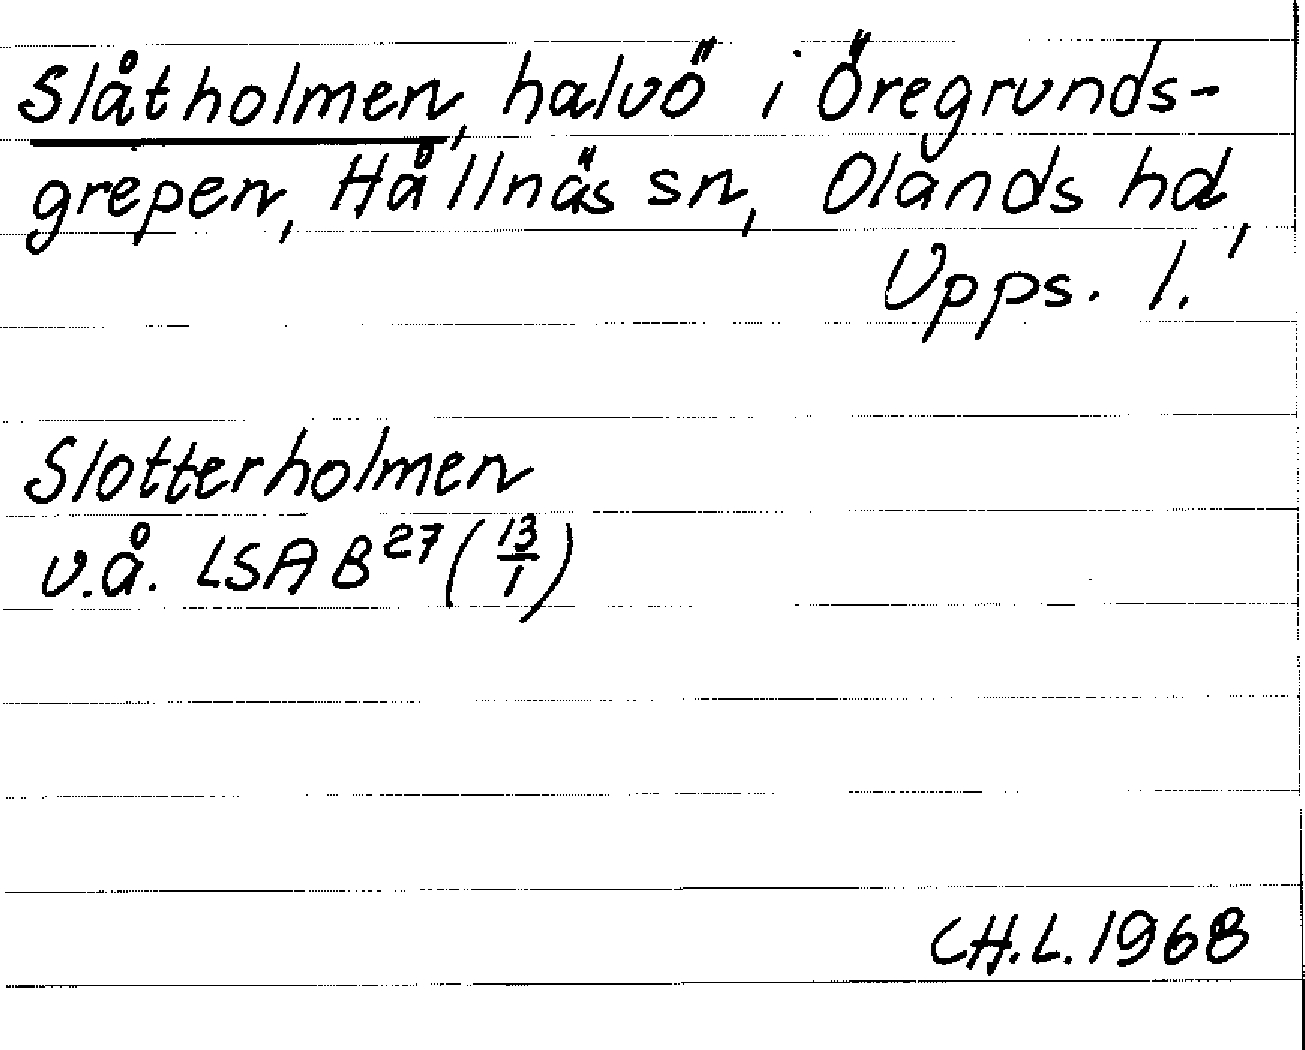 Slåtholmen, halvö i Öregrunds-
grepen, Hållnäs sn, Olands hd,
Upps. l.
Slotterholmen
v.å. LSA B27 (13/1)
CH.L. 1968